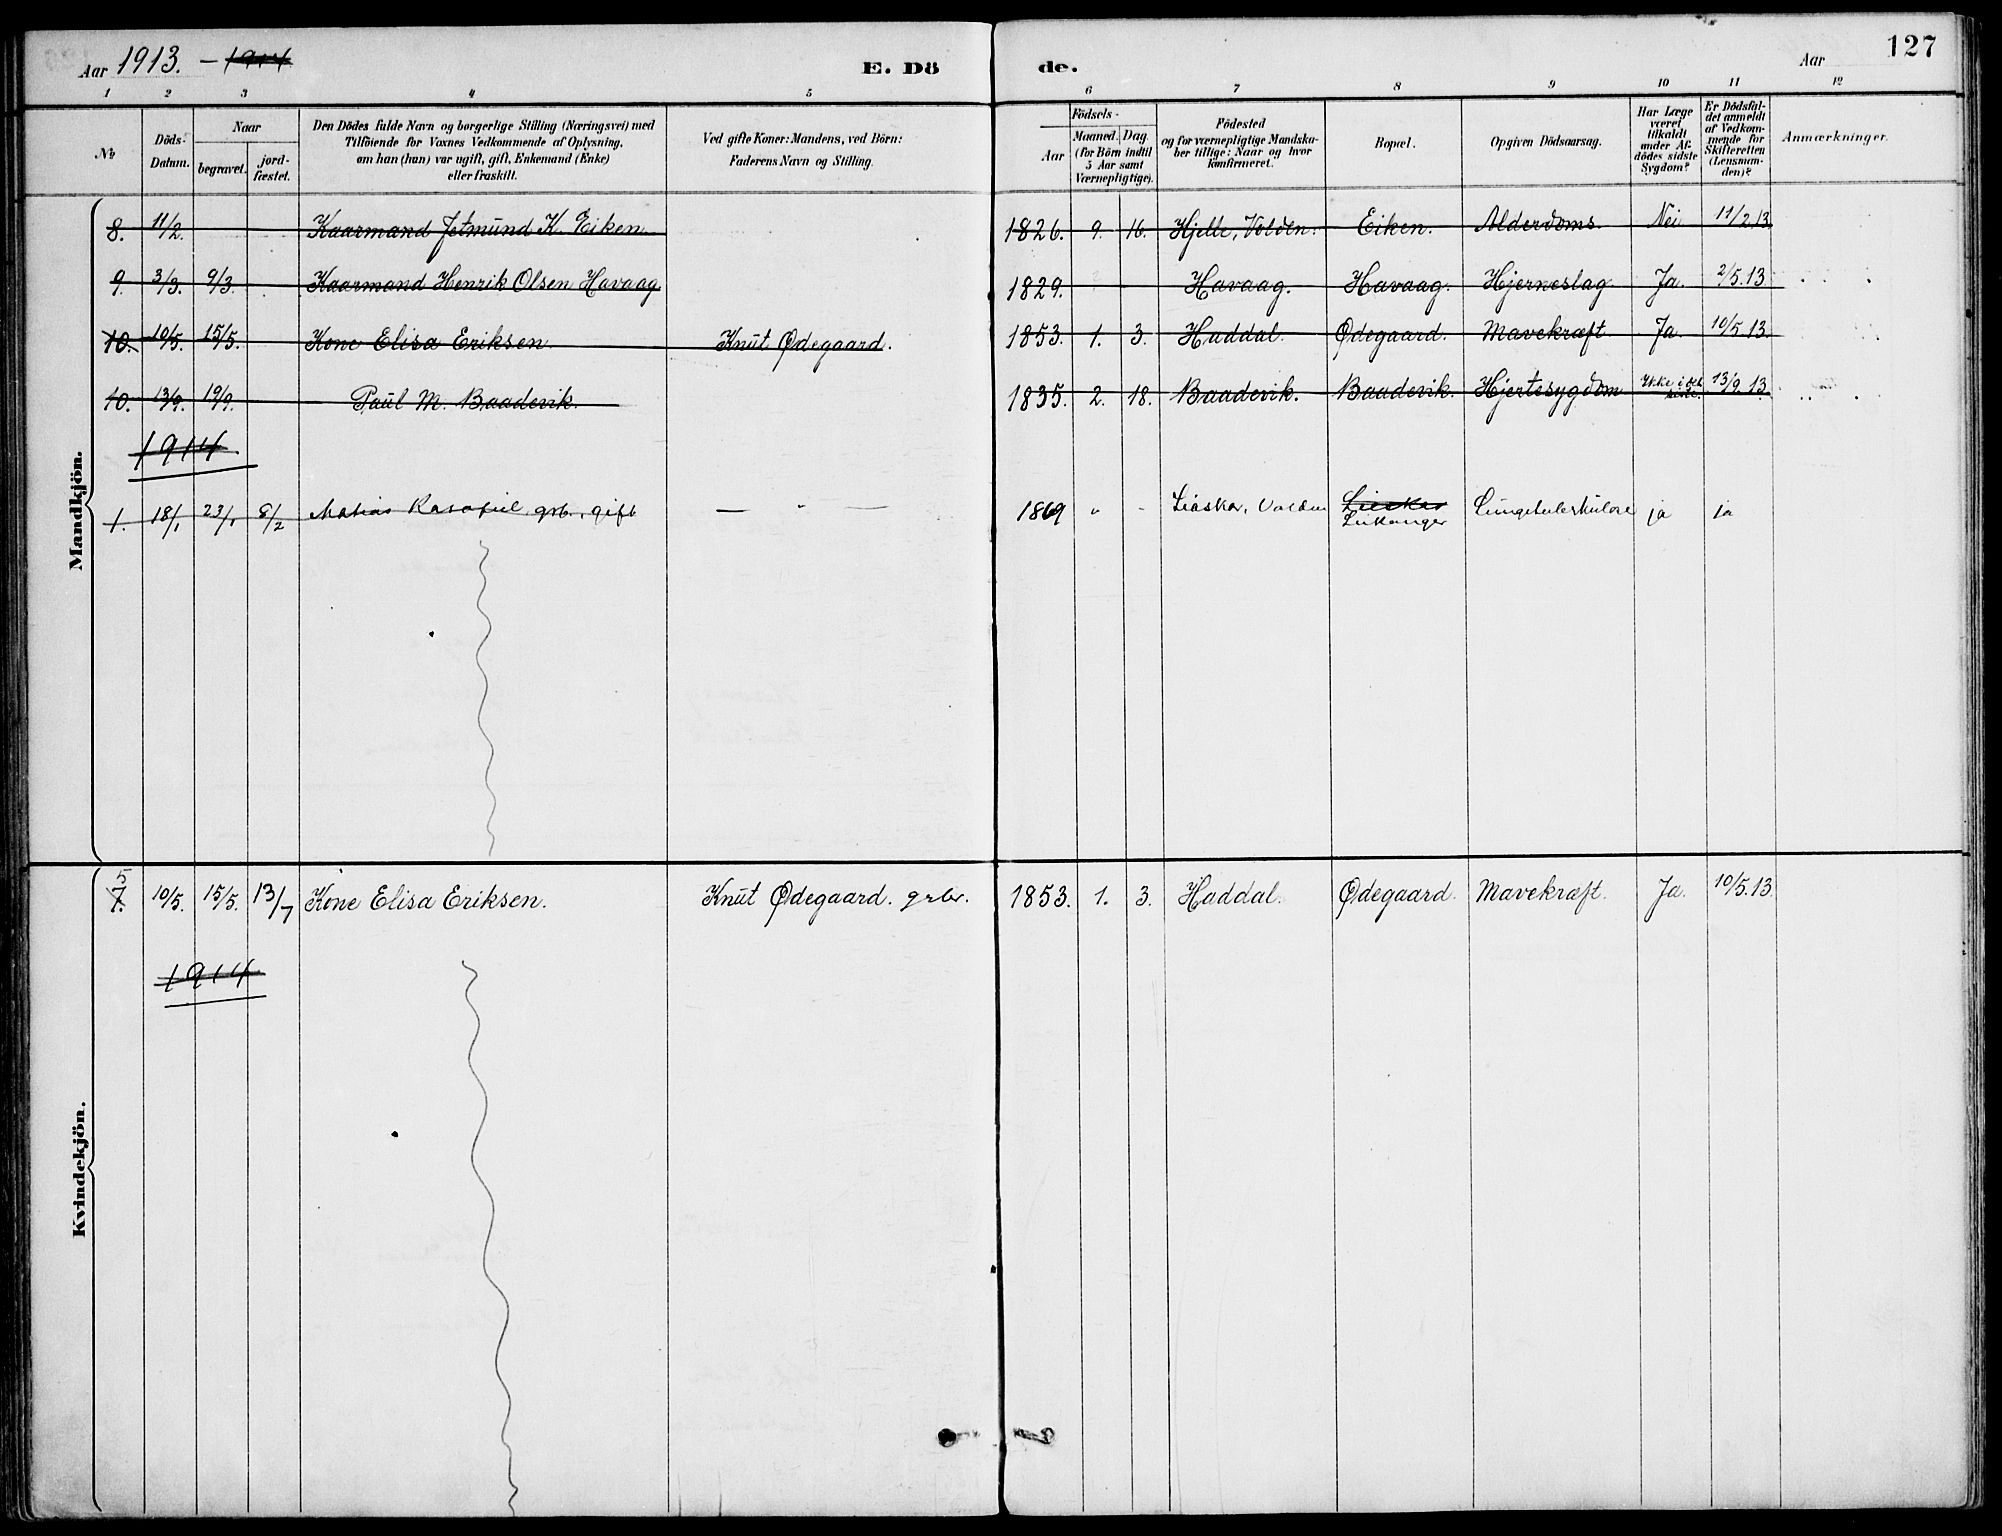 Aar 1913. – 1914
E. Dö
de.
Aar
127
1 2 3 4 5 6 7 8 9 10 11 12
№
Döds-
Datum.
Naar
begravet.
jord-
fæstet.
Den Dödes fulde Navn og borgerlige Stilling (Næringsvei) med
Tilföiende for Voxnes Vedkommende af Oplysning,
om han (hun) var ugift, gift, Enkemand (Enke)
eller fraskilt.
Ved gifte Koner: Mandens, ved Börn:
Faderens Navn og Stilling.
Födsels-
Aar
Maaned. Dag.
(for Börn indtil
5 Aar samt
Værnepligtige).
Födested
og for værnepligtige Mandska-
ber tillige: Naar og hvor
konfirmeret.
Bopæl.
Opgiven Dödsaarsag.
Har Læge
været
tilkaldt
under Af-
dödes sidste
Sygdom?
Er Dödsfal-
det anmeldt
af Vedkom-
mende for
Skifteretten
(Lensman-
den)?
Anmærkninger.
Mandkjön.
8. 11/2. Kaarmand Jetmund K. Eiken. 1826. 9. 16. Hjelle, Volden. Eiken. Alderdoms. Nei 11/2.13.
9. 3/3. 9/3. Kaarmand Henrik Olsen Havaag 1829. Havaag. Havaag. Hjerneslag Ja. 2/5.13
10. 10/5. 15/5. Kone Elisa Eriksen. Knut Ødegaard. 1853. 1. 3. Haddal. Ødegaard. Mavekræft Ja. 10/5.13.
10. 13/9. 19/9. Paul M. Baadevik. 1835. 2. 18. Baadevik. Baadevik. Hjertesygdom Ikke i det 13/9.13.
1914
1. 18/1 23/1 8/2 grb., gift — " — 1869 " - Liaskar, Volden Liaskar
Leikanger
ja ja
Kvindekjön.
5
7. 10/5. 15/5. 13/7 Kone Elisa Eriksen. Knut Ødegaard. grbr. 1853. 1. 3. Haddal. Ødegaard. Mavekræft. Ja. 10/5.13.
1914